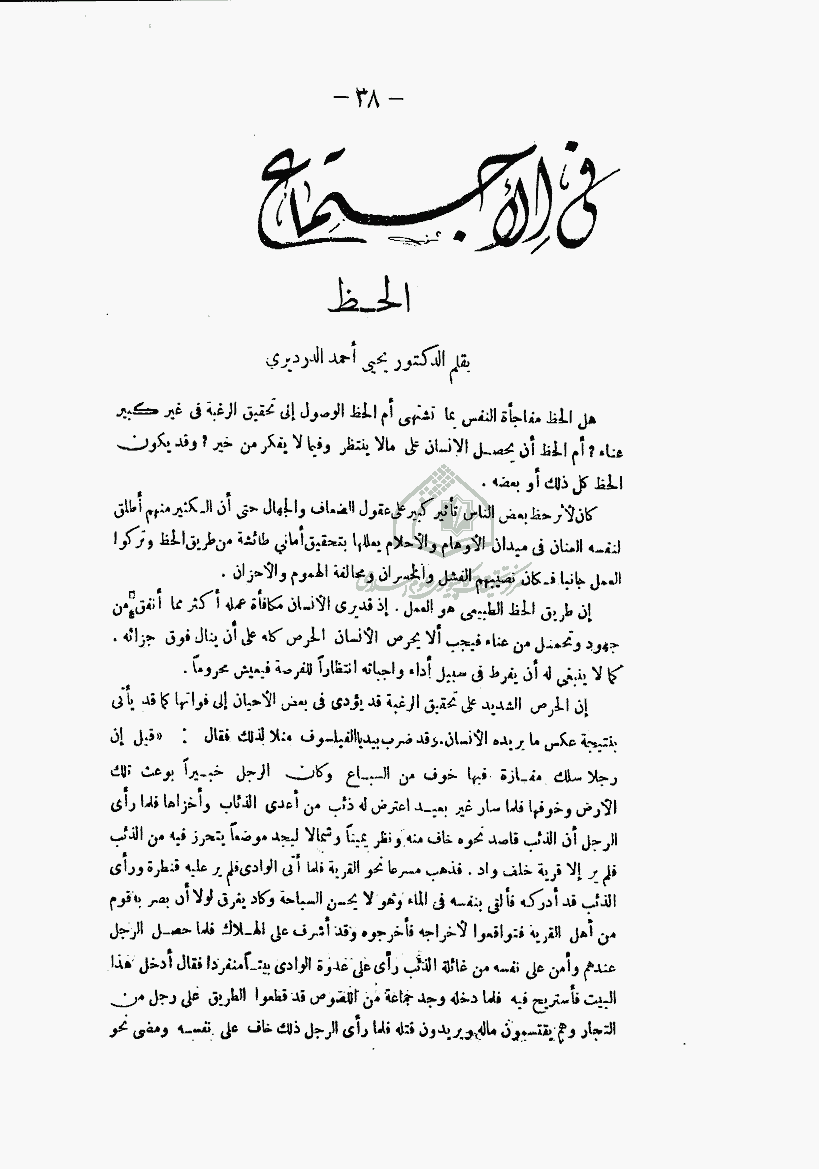 — ٣٨ —
فى الاجتماع
الحـظ
بقلم الدكتور يحيى أحمد الدرديري
هل الحظ مفاجأة النفس بما تشتهى أم الحظ الوصول إلى تحقيق الرغبة فى غير كبير
عناء ؟ أم الحظ أن يحصـل الانسان على مالا ينتظر وفيما لا يفكر من خير ؟ وقد يكون
الحظ كل ذلك أو بعضه .
كان لأثر حظ بعض الناس تأثير كبير على عقول الضعاف والجهال حتى أن الـكثير منهم أطلق
لنفسه العنان فى ميدان الأوهام والأحلام يعللها بتحقيق أماني طائشة من طريق الحظ وتركوا
العمل جانبا فـكان نصيبهم الفشل والخسران ومحالفة الهموم والأحزان .
إن طريق الحظ الطبيعى هو العمل . إذ قد يرى الانسان مكافأة عمله أكثر مما أنفق من
جهود وتحمـل من عناء فيجب ألا يحرص الأنسان الحرص كله على أن ينال فوق جزائه .
كما لا ينبغى له أن يفرط فى سبيل أداء واجباته انتظاراً للفرصة فيعيش محروماً .
إن الحرص الشديد على تحقيق الرغبة قد يؤدى فى بعض الأحيان إلى فواتها كما قد يأتى
بنتيجة عكس ما يريده الأنسان. وقد ضرب بيدبا الفيلسوف مثلا لذلك فقال : « قيل إن
رجلا سلك مفـازة فيها خوف من السبـاع وكان الرجل خبـيراً بوعث تلك
الأرض وخوفها فلما سار غير بعيـد اعترض له ذئب من أعدى الذئاب وأخزاها فلما رأى
الرجل أن الذئب قاصد نحوه خاف منه ونظر يميناً وشمالا ليجد موضعاً يتحرز فيه من الذئب
فلم ير إلا قرية خلف واد . فذهب مسرعا نحو القرية فلما أتى الوادى فلم ير عليه قنطرة ورأى
الذئب قد أدركه فألقى بنفسه فى الماء وهو لا يحسن السباحة وكاد يغرق لولا أن بصر به قوم
من أهل القرية فتواقعوا لأخراجه فأخرجوه وقد أشرف على الهـلاك فلما حصـل الرجل
عندهم وأمن على نفسه من غائلة الذئب رأى على عدوة الوادى بيتـاً منفردا فقال أدخل هذا
البيت فأستريح فيه فلما دخله وجد جماعة من اللصوص قد قطعوا الطريق على رجل من
التجار وهم يقتسمون ماله ويريدون قتله فلما رأى الرجل ذلك خاف على نفسـه ومضى نحو